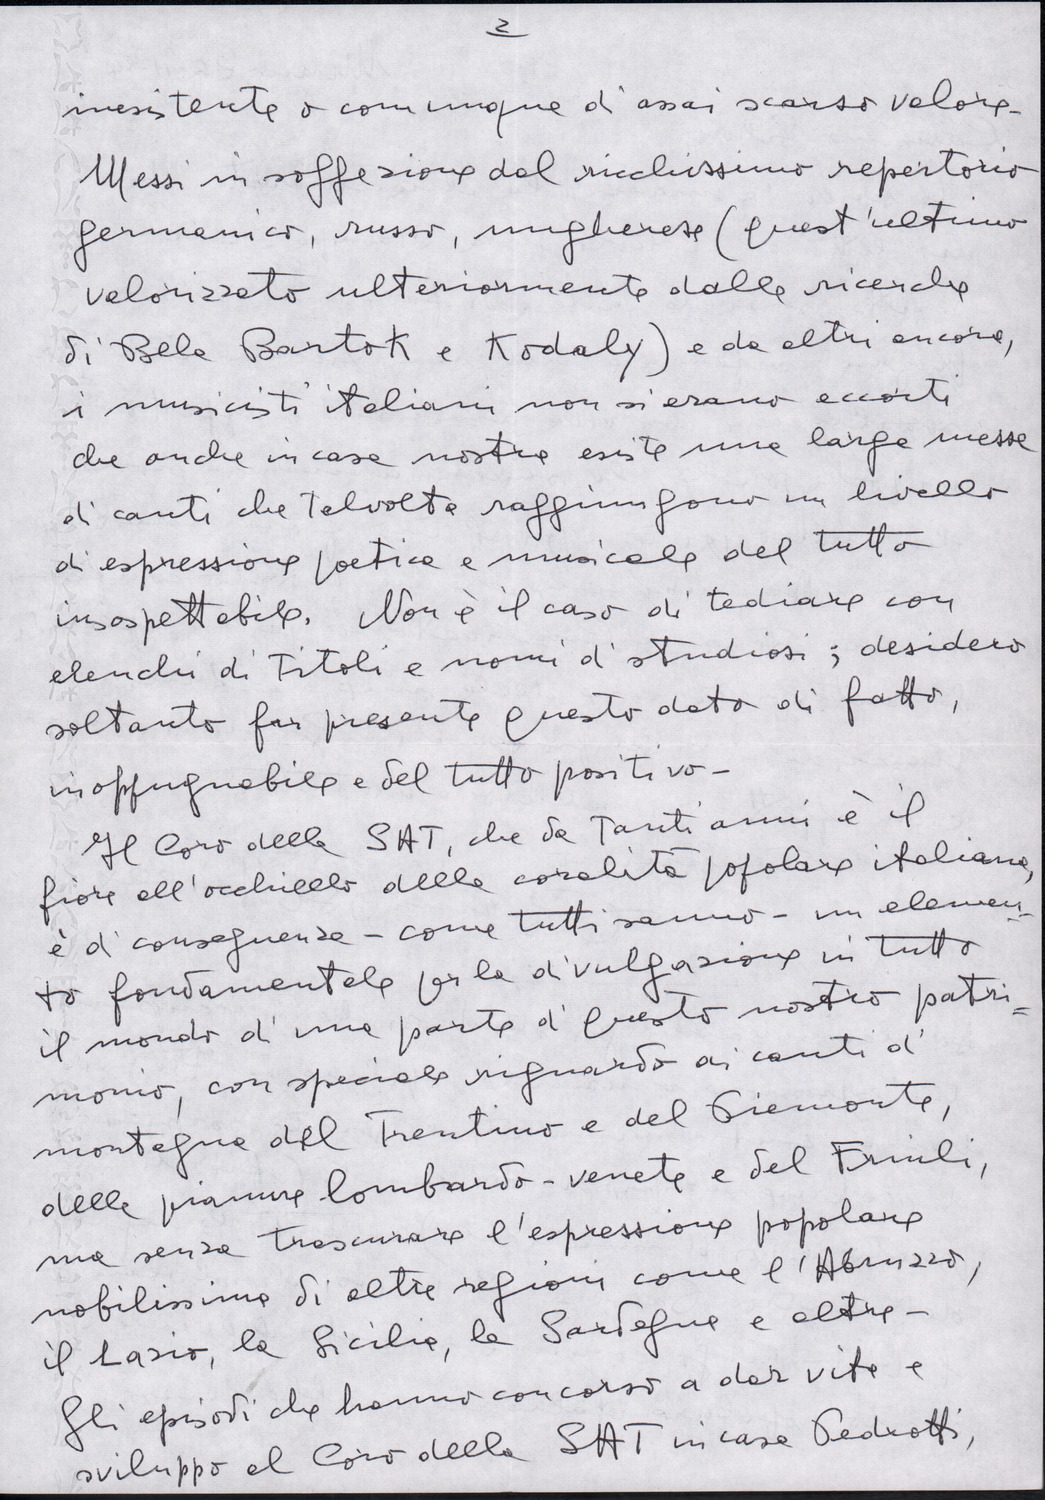 2
inesistente o comunque di assai scarso valore-
Messi in soggezione dal ricchissimo repertorio
germanico, russo, ungherese (quest'ultimo
valorizzato ulteriormente dalle ricerche
di Bela Bartok e Kodaly) e da altri ancora,
i musicisti italiani non si erano accorti
che anche in casa nostra esiste una larga messe
di canti che talvolta raggiungono un livello
di espressione poetica e musicale del tutto
insospettabile. Non è il caso di tediare con
elenchi di titoli e nomi di studiosi; desidero
soltanto far presente questo dato di fatto,
inoppugnabile e del tutto positivo-
Il Coro della SAT, che da tanti anni è il
fiore all'occhiello della coralità popolare italiana,
è di conseguenza - come tutti sanno - un elemen-
to fondamentale per la divulgazione in tutto
il mondo di una parte di questo nostro patri=
monio, con speciale riguardo ai canti di
montagna del Trentino e del Piemonte,
delle pianure lombardo-venete e del Friuli,
ma senza trascurare l'espressione popolare
nobilissima di altre regioni come l'Abruzzo,
il Lazio, la Sicilia, la Sardegna e altre-
Gli episodi che hanno concorso a dar vita e
sviluppo al Coro della SAT in casa Pedrotti,